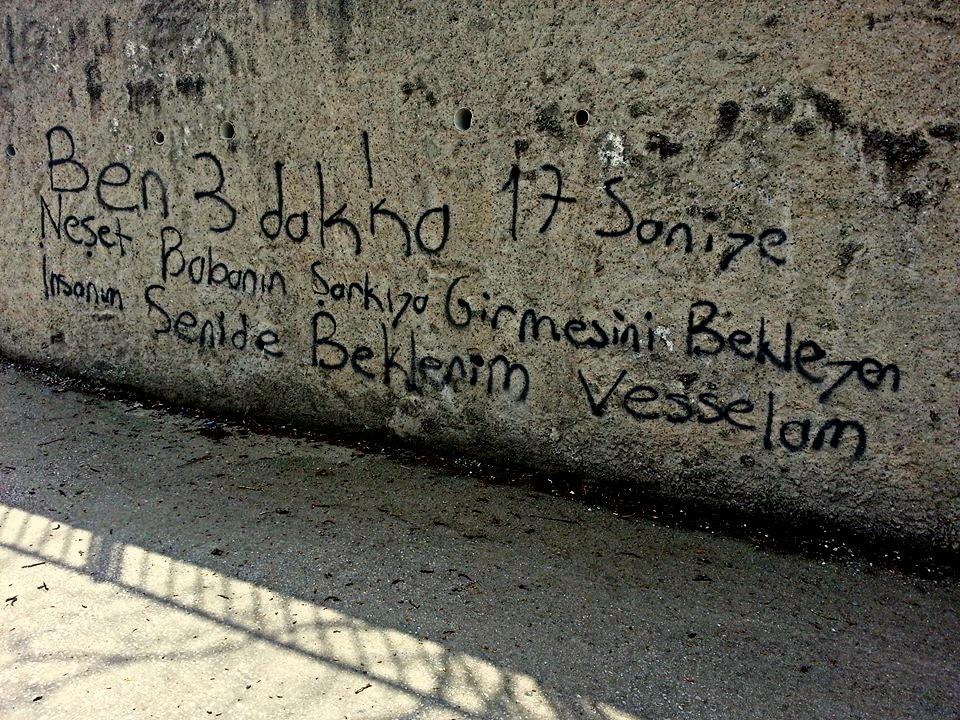 Ben 3 dakka 17 Saniye
Neşet Babanın Şarkıya Girmesini Bekleyen
İnsanım Senide Beklerim Vesselam